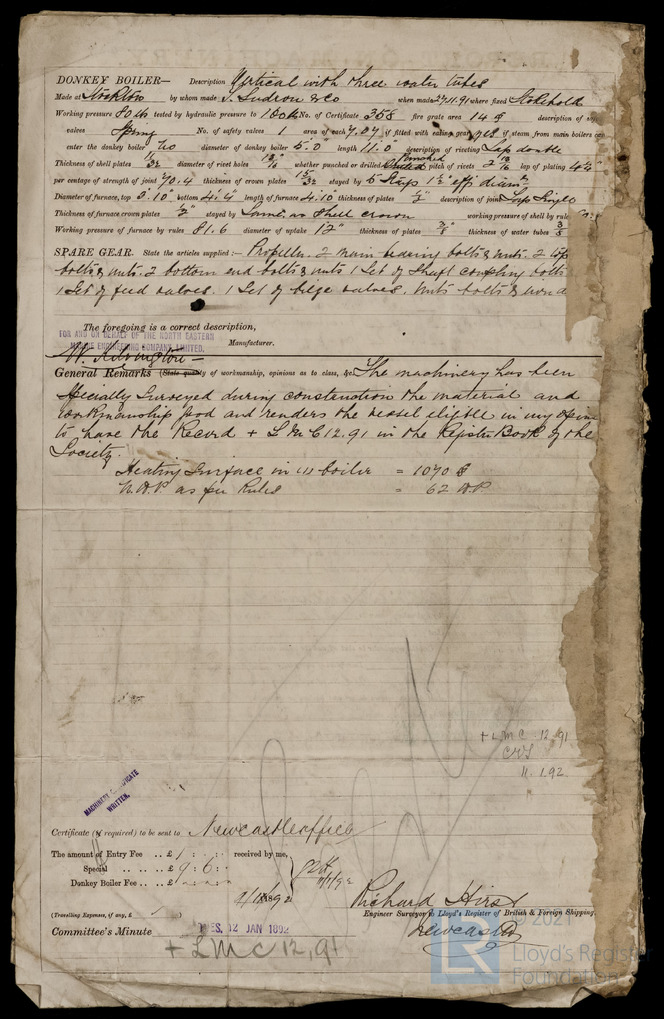 DONKEY BOILER— Description Vertical with three water tubes
Made at Stockton by whom made T. Sudron & Co when made 27.11.91 where fixed Stokehold
Working pressure 80 lb tested by hydraulic pressure to 160 lb No. of Certificate 358 fire grate area 14 description of safety
valves Spring No. of safety valves 1 area of each 7.07 if fitted with easing gear yes if steam from main boilers can
enter the donkey boiler no diameter of donkey boiler 5.0" length 11.0" description of riveting Lap double
Thickness of shell plates 11/32 diameter of rivet holes 13/16" whether punched or drilled punched pitch of rivets 2 13/16 lap of plating 4
per centage of strength of joint 70.4 thickness of crown plates 15/32 stayed by 5 Stays 1 1/2" eff diam
Diameter of furnace, top 3'.10" bottom 4'.4" length of furnace 4.10 thickness of plates description of joint Lap Single
Thickness of furnace crown plates stayed by Same as Shell crown working pressure of shell by rules
Working pressure of furnace by rules 81.6 diameter of uptake 12" thickness of plates 3/8" thickness of water tubes 3/8
SPARE GEAR. State the articles supplied:— Propeller. 2 main bearing bolts & nuts. 2 top
bolts & nuts. 2 bottom end bolts & nuts 1 Set of Shaft coupling bolts
1 Set of feed valves. 1 Set of bilge valves. Nuts bolts &
The foregoing is a correct description,
FOR AND ON BEHALF OF THE NORTH EASTERN
MARINE ENGINEERING COMPANY LIMITED.
Manufacturer.
W. Kilvington
General Remarks (State quality of workmanship, opinions as to class, &c. The machinery has been
Specially Surveyed during construction the material and
workmanship good and renders the vessel eligible in my opin
to have the Record + L M C 12.91 in the Register Book of the
Society.
Heating Surface in boiler = 1070
N.H.P. as per Rules = 62 H.P.
+ L M C . 12,91
11.1.92
MACHINERY CERTIFICATE
WRITTEN.
Certificate (if required) to be sent to Newcastle office
The amount of Entry Fee .. £ 1 : : received by me,
Special .. .. .. £ 9 : 6 :
Donkey Boiler Fee .. .. £
(Travelling Expenses, if any, £
Richard Hirst
Engineer Surveyor to Lloyd's Register of British & Foreign Shipping.
Newcastle
Committee's Minute TUES. 12 JAN 1892
+ L M C 12,91
© 2021
LR
Lloyd's Register
Foundation